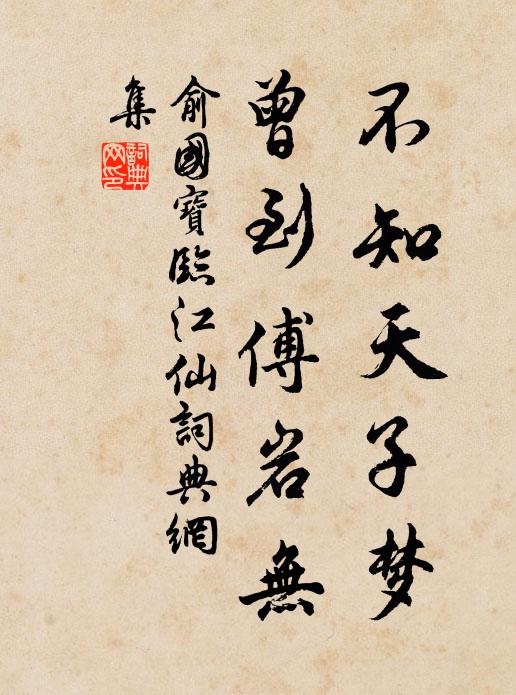 不知天子梦
曾到傅岩無
俞國寶臨江仙詞典網
集
詞典
网印